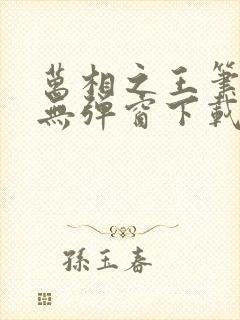 萬相之王筆
無彈窗下載
孫玉春